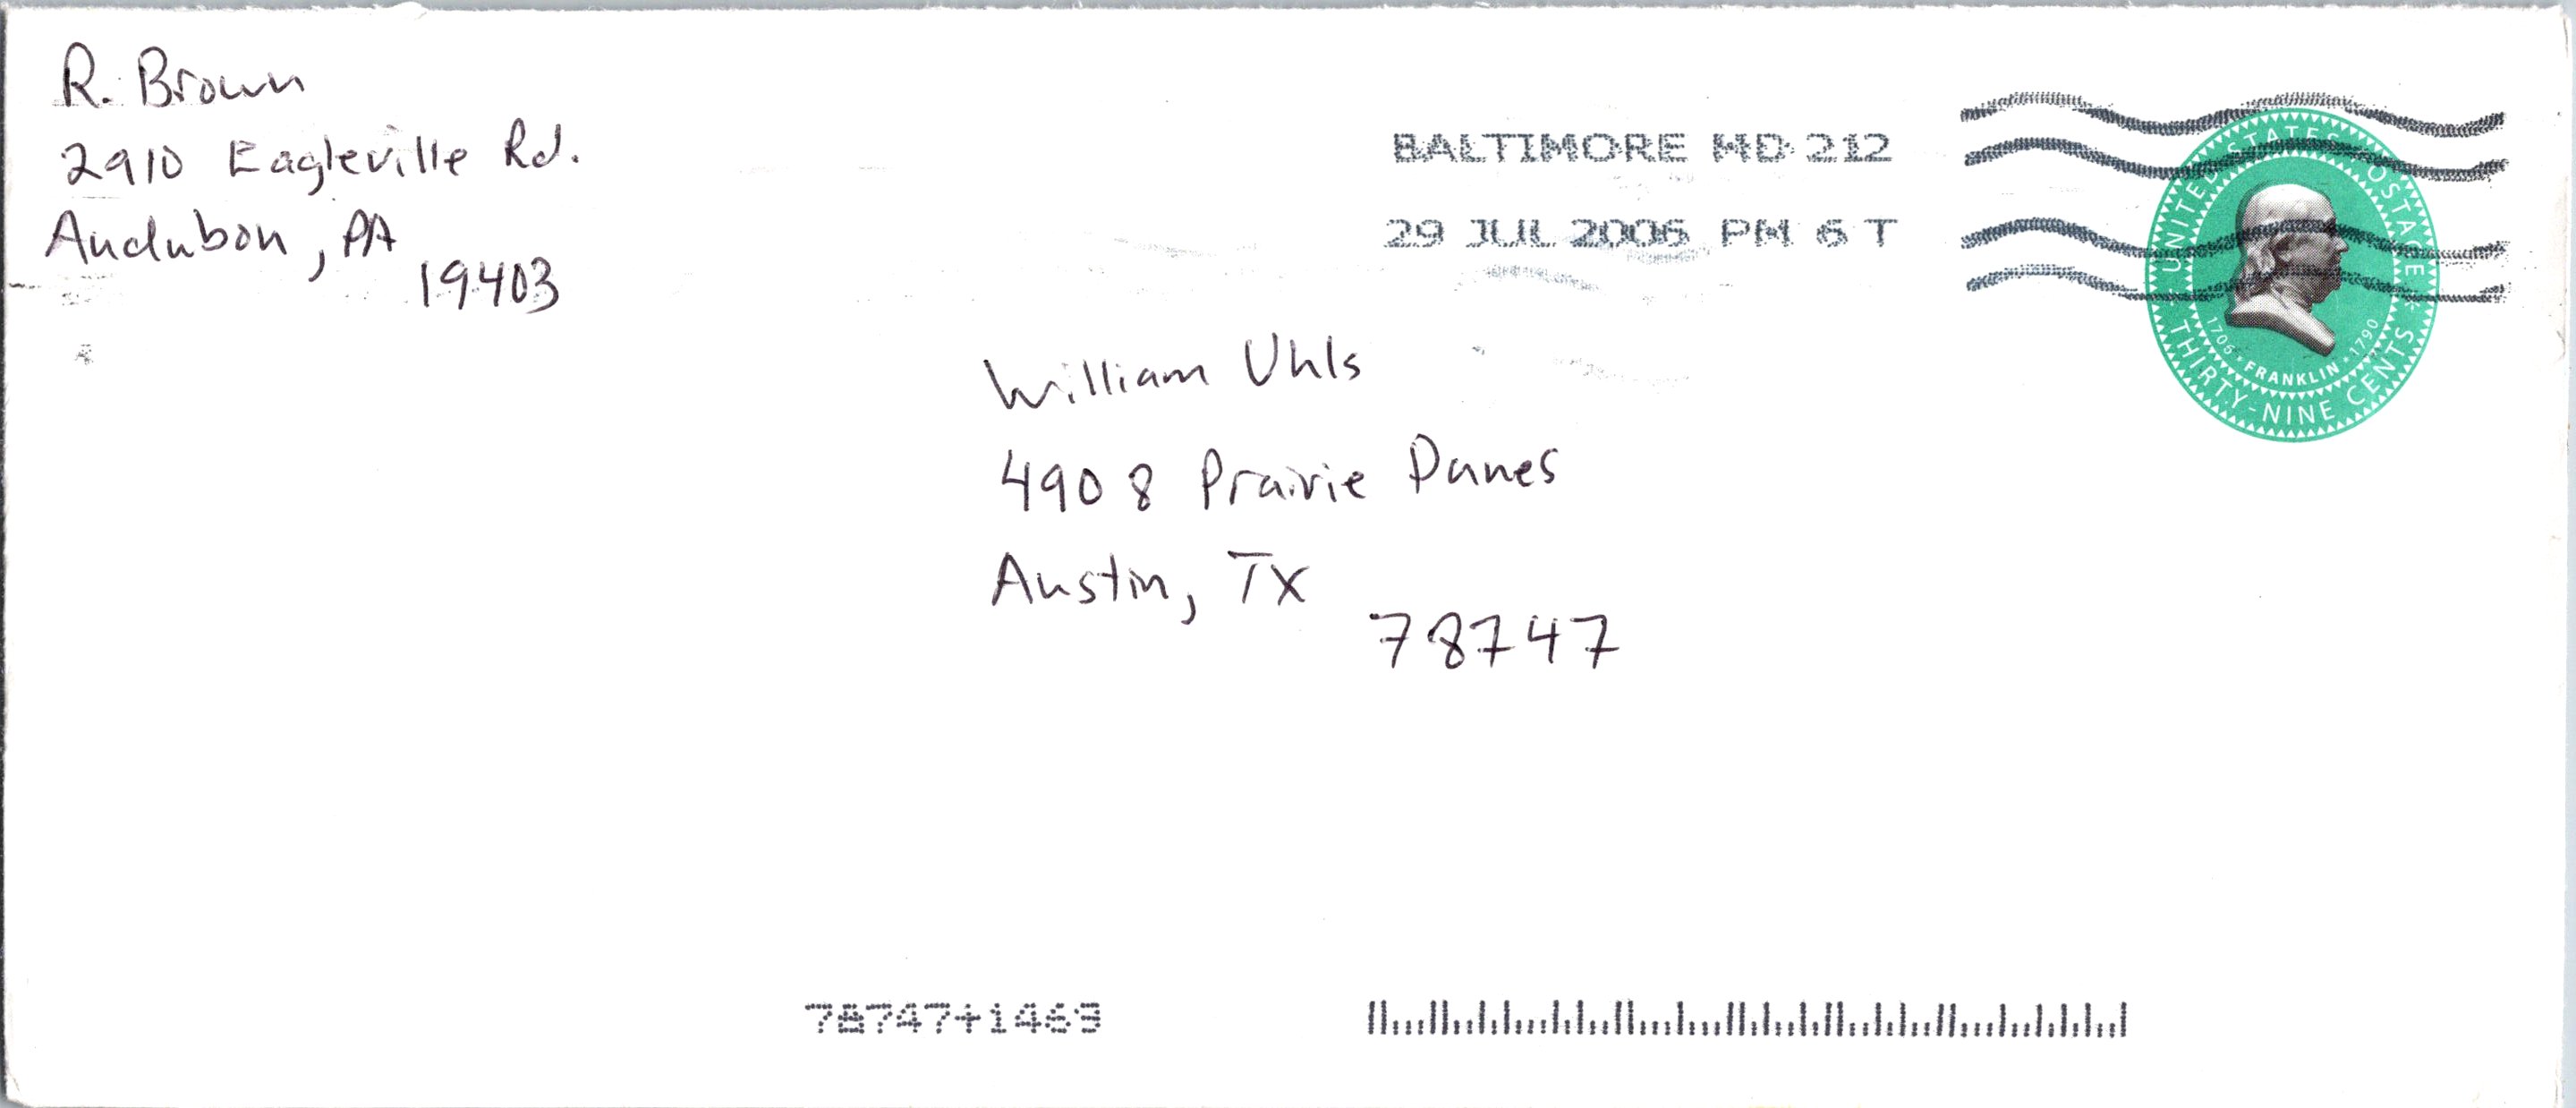 R. Brown
2910 Eagleville Rd.
Audubon, PA
19403
BALTIMORE MD 212
29 JUL 2006 PM 6 T
UNITED STATES POSTAGE
1706 • FRANKLIN • 1790
THIRTY-NINE CENTS
William Uhls
4908 Prairie Dunes
Austin, TX
78747
78747+1469